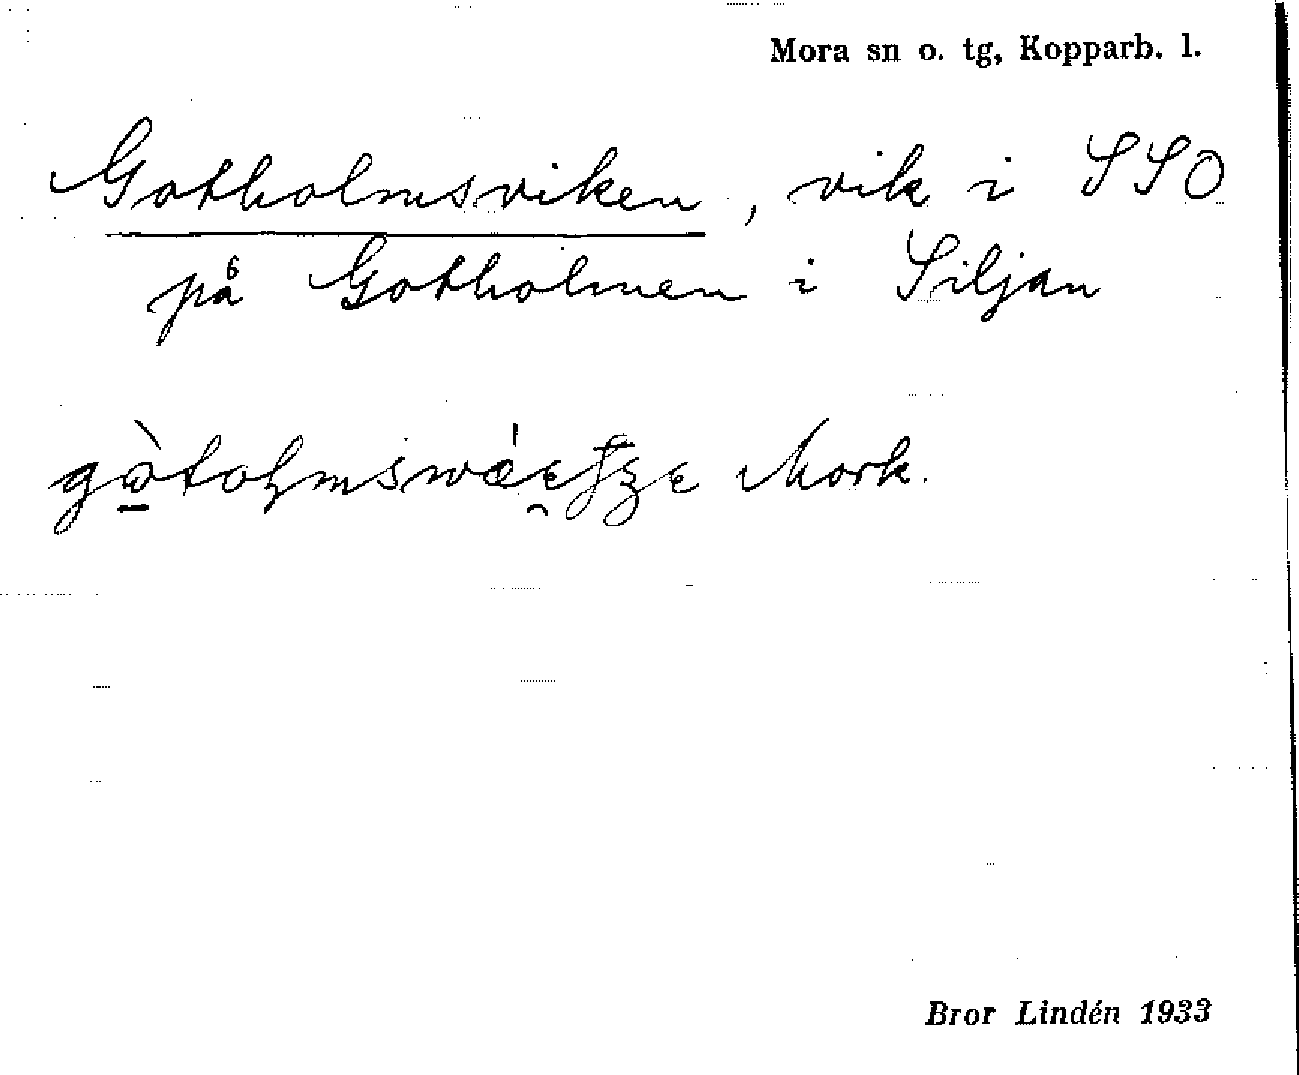 Mora sn o. tg, Kopparb. l.
Gotholmsviken, vik i SSO
på Gotholmen i Siljan
Mork.
Bror Lindén 1933